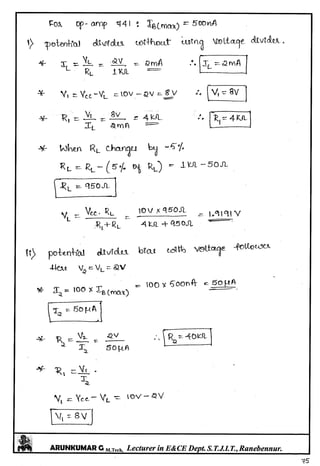 For op-amp 741 : I_B(max) = 500nA
1) potential divider without using voltage divider.
* I_L = V_L/R_L = 2V/1KΩ = 2mA ∴ I_L = 2mA
* V₁ = Vcc - V_L = 10V - 2V = 8V ∴ V₁ = 8V
* R₁ = V₁/I_L = 8V/2mA = 4KΩ ∴ R₁ = 4KΩ
* When R_L changes by -5%.
R_L = R_L - (5% of R_L) = 1KΩ - 50Ω
R_L = 950Ω
V_L = Vcc · R_L / R₁ + R_L = 10V × 950Ω / 4KΩ + 950Ω = 1.9191V
11) potential divider bias with voltage follower
Here V₂ = V_L = 2V
* I₂ = 100 × I_B(max) = 100 × 500nA = 50µA
I₂ = 50µA
* R₂ = V_L/I₂ = 2V/50µA ∴ R₂ = 40KΩ
* R₁ = V₁/I₂ .
V₁ = Vcc - V_L = 10V - 2V
V₁ = 8V
ARUNKUMAR G M.Tech, Lecturer in E&CE Dept. S.T.J.I.T., Ranebennur.
75